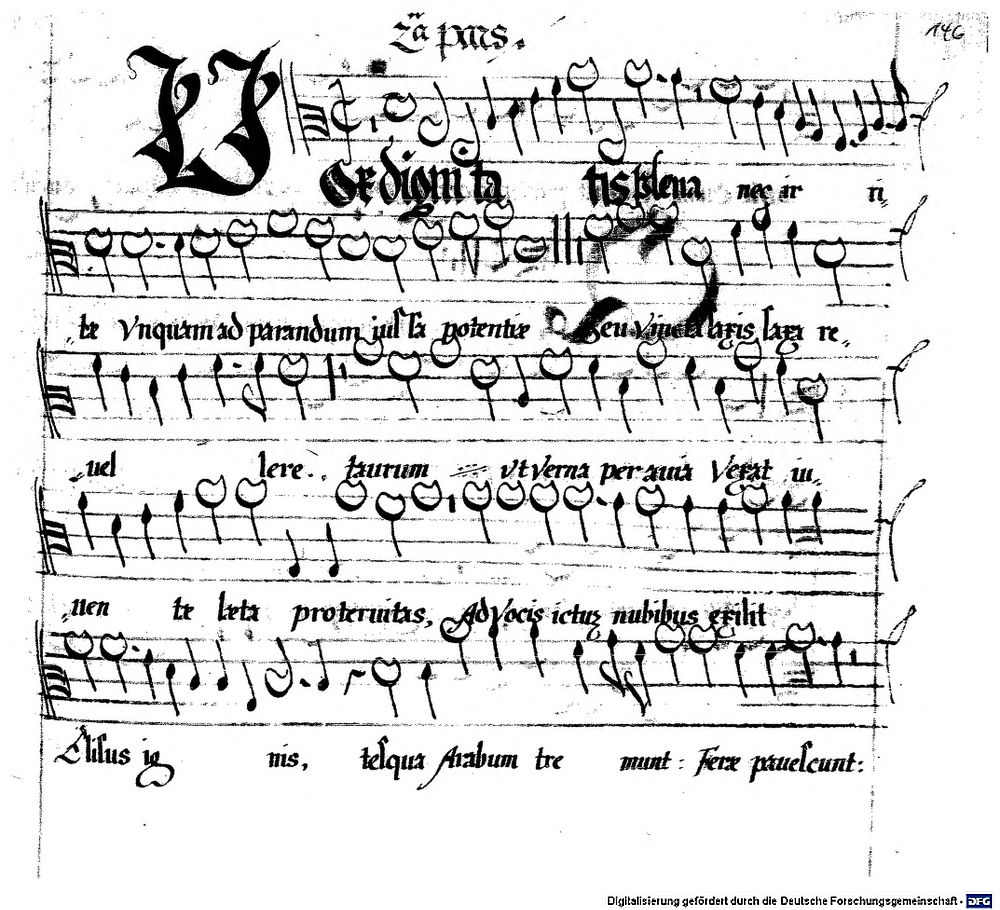 2ª pars.
146
Vox dignita tis plena nec ir ri
tæ Vnquam ad parandum iussa potentiæ Seu vincta saxis saxa re
uel lere. taurum Vt Verna per auia Vexat iu
uen tæ læta proteruitas, Ad Vocis ictus nubibus exilit
Elisus ig nis, tesqua Arabum tre munt: Feræ pauescunt:
Digitalisierung gefördert durch die Deutsche Forschungsgemeinschaft - DFG